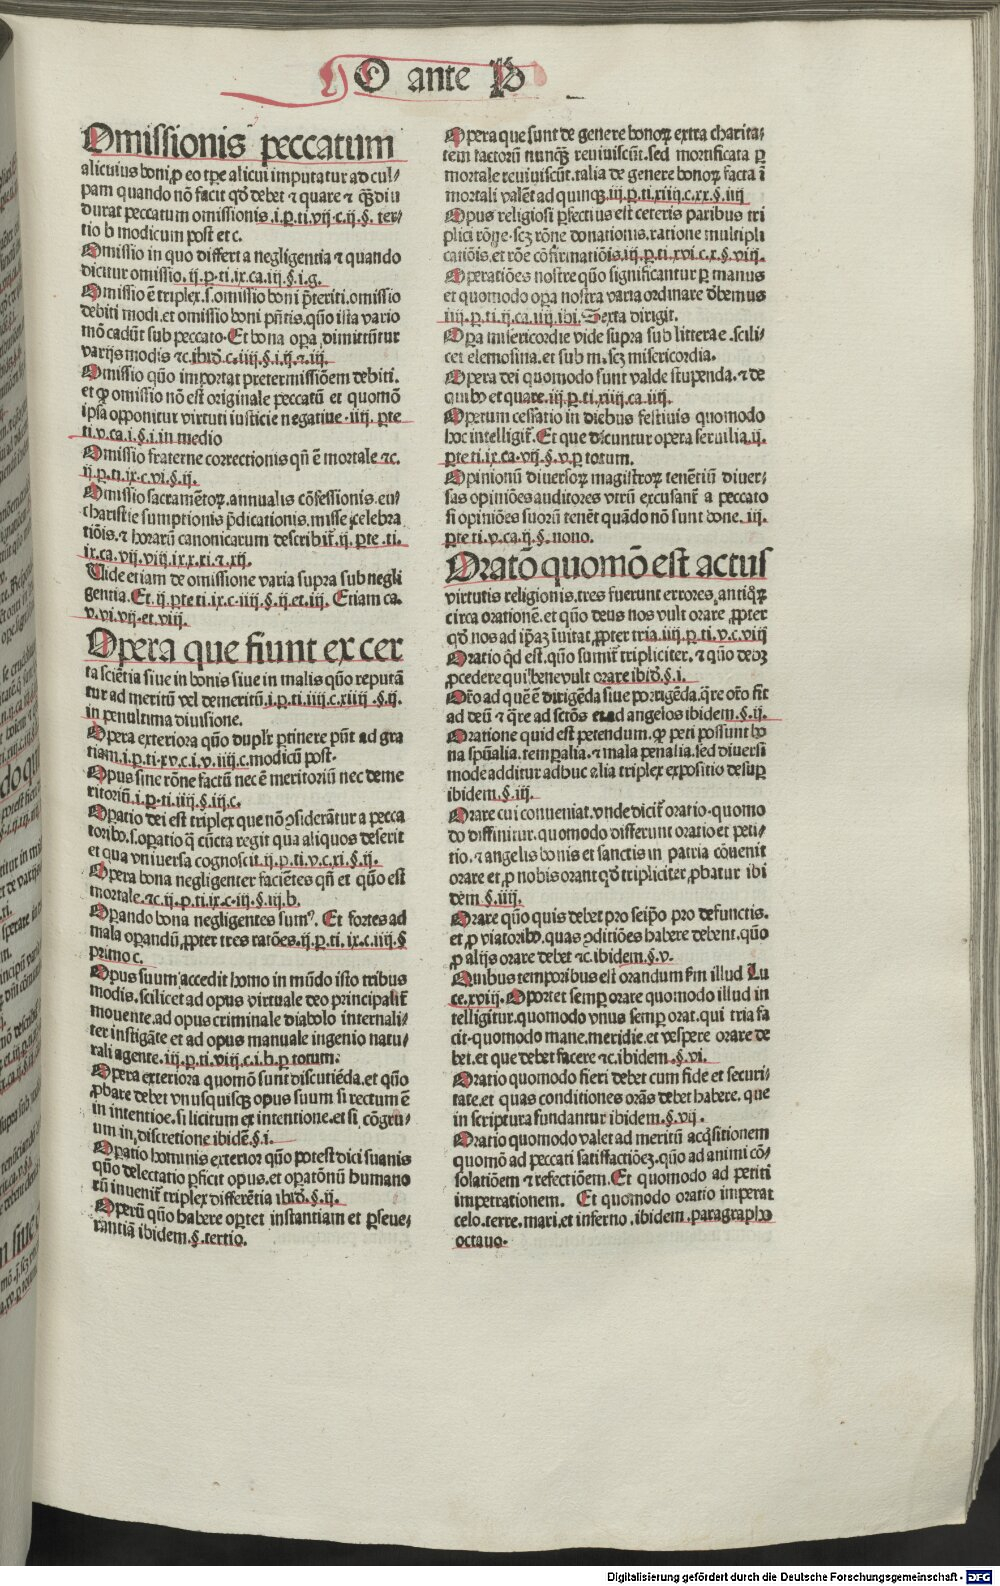 O ante P
Omissionis peccatum
alicuius boni ꝓ eo tꝑe alicui imputatur ad cul⸗
pam quando nō facit qđ debet ⁊ quare ⁊ qͣꝫdiu
durat peccatum omissionis .i.ꝑ.ti.vij.c.ij.§. ter⸗
tio b modicum post et c.
Omissio in quo differt a negligentia ⁊ quando
dicitur omissio .ij.ꝑ.ti.ix.ca.iij.§.i.g.
Omissio ē triplex.s.omissio boni p̄teriti.omissio
debiti modi.et omissio boni p̄ntis.quō ista vario
mō cadūt sub peccato. Et bona oꝑa dimittūtur
varijs modis ⁊c.ibid̄.c.iiij.§.i.ij.⁊.iij.
Omissio quō importat pretermissiōem debiti.
et ꝙ omissio nō est originale peccatū et quomō
ipsa opponitur virtuti iusticie negatiue.iiij. ꝑte
ti.v.ca.i.§.i.in medio
Omissio fraterne correctionis qn̄ ē mortale ⁊c.
ij.ꝑ.ti.ix.c.vi.§.ij.
Omissio sacramētoꝝ.annualis cōfessionis.eu⸗
charistie sumptionis p̄dicationis.misse celebra
tiōis.⁊ horarū canonicarum describit̄.ij. ꝑte .ti.
ix.ca.vij.viij.ix.x.xi.⁊.xij.
Uide etiam de omissione varia supra sub negli
gentia. Et.ij.ꝑte ti.ix.c.iiij.§.ij.et.iij. Etiam ca.
v.vi.vij.et.viij.
Opera que fiunt ex cer
ta sciētia siue in bonis siue in malis quō reputā
tur ad meritū vel demeritū.i.ꝑ.ti.iiij.c.xiiij.§.ij.
in penultima diuisione.
Opera exteriora quō duplr̄ ꝑtinere pn̄t ad gra
tiam.i.ꝑ.ti.xv.c.i.v.iiij.c.modicū post.
Opus sine rōne factū nec ē meritoriū nec deme
ritoriū.i.ꝑ.ti.iiij.§.iij.c.
Oꝑatio dei est triplex que nō ↄsiderātur a pecca
torib⁹.s.oꝑatio q̄ cūcta regit qua aliquos deserit
et qua vniuersa cognoscit.ij.ꝑ.ti.v.c.xi.§.ij.
Opera bona negligenter faciētes qn̄ et quō est
mortale.⁊c.ij.ꝑ.ti.ix.c.iij.§.iij.b.
Oꝑando bona negligentes sum⁹. Et fortes ad
mala oꝑandū ꝓpter tres ratōes.ij.ꝑ.ti.ix.c.iiij.§
primo c.
Opus suum accedit homo in mūdo isto tribus
modis.scilicet ad opus virtuale deo principalit̄
mouente.ad opus criminale diabolo internali⸗
ter instigāte et ad opus manuale ingenio natu⸗
rali agente.iij.ꝑ.ti.viij.c.i.b.ꝑ totum.
Opera exteriora quomō sunt discutiēda.et quō
ꝓbare debet vnusquisqꝫ opus suum si rectum ē
in intentioe.si licitum ex intentione.et si cōgru⸗
um in discretione ibidē.§.i.
Oꝑatio hominis exterior quō potest dici suauis
quō delectatio ꝑficit opus.et oꝑatōnū humano
rū inuenit̄ triplex differētia ibid̄.§.ij.
Operū quō habere oꝑtet instantiam et ꝑseue⸗
rantiā ibidem.§.tertio.
Opera que sunt de genere bonoꝝ extra charita⸗
tem factorū nunqͣꝫ reuiuiscūt.sed mortificata ꝑ
mortale reuiuiscūt.talia de genere bonoꝝ facta ī
mortali valēt ad quinqꝫ.iij.ꝑ.ti.xiiij.c.xx.§.iiij
Opus religiosi ꝑfectius est ceteris paribus tri
plici rōne.scꝫ rōne donationis.ratione multipli
catiōis.et rōe cōfirmatiōis.iij.ꝑ.ti.xvi.c.x.§.viij.
Operatiōes nostre quō significantur ꝑ manus
et quomodo oꝑa nostra varia ordinare debemus
iiij.ꝑ.ti.ij.ca.iiij.ibi. Sexta dirigit.
Oꝑa misericordie vide supra sub littera e.scili⸗
cet elemosina.et sub m.scꝫ misericordia.
Opera dei quomodo sunt valde stupenda.⁊ de
quib⁹ et quare.iij.ꝑ.ti.xiiij.ca.iiij.
Operum cessatio in diebus festiuis quomodo
hoc intelligit̄. Et que dicuntur opera seruilia.ij.
ꝑte ti.ix.ca.vij.§.v.ꝑ totum.
Opinionū diuersoꝝ magistroꝝ tenētiū diuer⸗
sas opiniōes auditores vtrū excusant̄ a peccato
si opiniōes suorū tenēt quādo nō sunt bone. iij.
ꝑte ti.v.ca.ij.§.nono.
Oratō quomō est actus
virtutis religionis.tres fuerunt errores antiqͦꝝ
circa orationē.et quō deus nos vult orare ꝓpter
qđ nos ad ip̄aꝫ īuitat ꝓpter tria.iiij.ꝑ.ti.v.c.viij
Oratio qͥd est.quō sumit̄ tripliciter.⁊ quō debꝫ
ꝓcedere qui bene vult orare ibid̄.§.i.
Or̄o ad que ē dirigēda siue porrigēda.q̄re or̄o fit
ad deū ⁊ q̄re ad sctōs et ad angelos ibidem.§.ij.
Oratione quid est petendum.ꝙ peti possunt bo
na spūalia.temꝑalia.⁊ mala penalia.sed diuersi
mode additur adhuc alia triplex expositio desuꝑ
ibidem.§.iij.
Orare cui conueniat.vnde dicit̄ oratio.quomo
do diffinitur.quomodo differunt oratio et peti⸗
tio.⁊ angelis bonis et sanctis in patria cōuenit
orare et ꝓ nobis orant qđ tripliciter ꝓbatur ibi
dem.§.iiij.
Orare quō quis debet pro seip̄o pro defunctis.
et ꝓ viatorib⁹.quas ↄditiōes habere debent.quō
ꝓ alijs orare debet ⁊c.ibidem.§.v.
Quibus temporibus est orandum ẜm illud Lu
ce.xviij. Oportet semꝑ orare quomodo illud in
telligitur.quomodo vnus semꝑ orat.qui tria fa
cit.quomodo mane.meridie.et vespere orare de
bet.et que debet facere ⁊c.ibidem.§.vi.
Oratio quomodo fieri debet cum fide et securi⸗
tate.et quas conditiones orās debet habere. que
in scriptura fundantur ibidem.§.vij.
Oratio quomodo valet ad meritū acq̄sitionem
quomō ad peccati satiffactiōeꝫ.quō ad animi cō⸗
solatiōem ⁊ refectiōem. Et quomodo ad petiti
impetrationem. Et quomodo oratio imperat
celo.terre.mari.et inferno.ibidem.paragrapho
octauo.
Digitalisierung gefördert durch die Deutsche Forschungsgemeinschaft - DFG